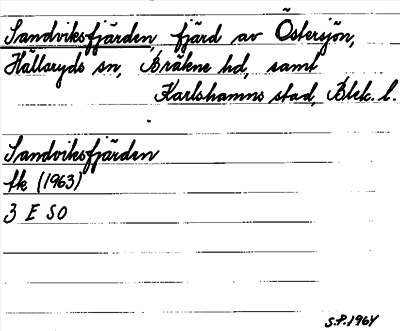 Sandviksfjärden, fjärd av Östersjön,
Hällaryds sn, Bräkne hd, samt
Karlshamns stad, Blek. l.
Sandviksfjärden
Ek (1963)
3 E SO
S.P. 1964